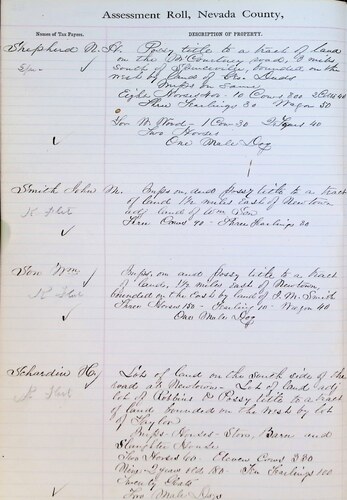 Assessment Roll, Nevada County,
Names of Tax Payers.
DESCRIPTION OF PROPERTY.
Shepherd N. H. Possy title to a tract of land
on the McCourtney road, 2 miles
South of , bounded on the
west by lands of Geo.
Imps on Same
Eight Horses 400 - 10 Cows 200
Three Yearlings 30 Wagon 50
Geo W. Wood - 1 Cow 30 40
Two Horses
One Male Dog
Smith John M. Imps on, and possy title to a tract
of land 1½ miles east of Newtown
adj land of Wm
Three Cows 90 - Three Yearlings 30
K Flat
Wm. Imps, on and possy title to a tract
of land, 1½ miles East of Newtown,
bounded on the East by land of J. M. Smith
Three Horses 150 - Yearling 10 - Wagon 40
One Male Dog
K Flat
Schardin Hy Lots of land on the South side of the
road at Newtown - Lot of land adj
lot of Robbins & Possy title to a tract
of land bounded on the West by lot
of Taylor
Imps - Houses - Store, Barn and
Slaughter House
Two Horses 60 Eleven Cows 330
Nine - 2 years olds 180 - Ten Yearlings 100
Twenty Goats
Two Male Dogs